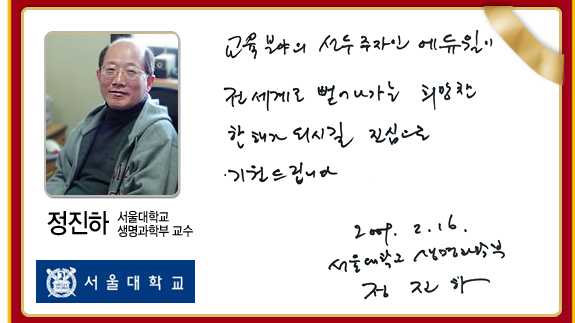 교육 분야의 선두주자인 에듀윌이
전세계로 뻗어나가는 희망찬
한해가 되시길 진심으로
기원드립니다
2009. 2. 16.
서울대학교 생명과학부
정 진 하
정진하 서울대학교
생명과학부 교수
서울대학교